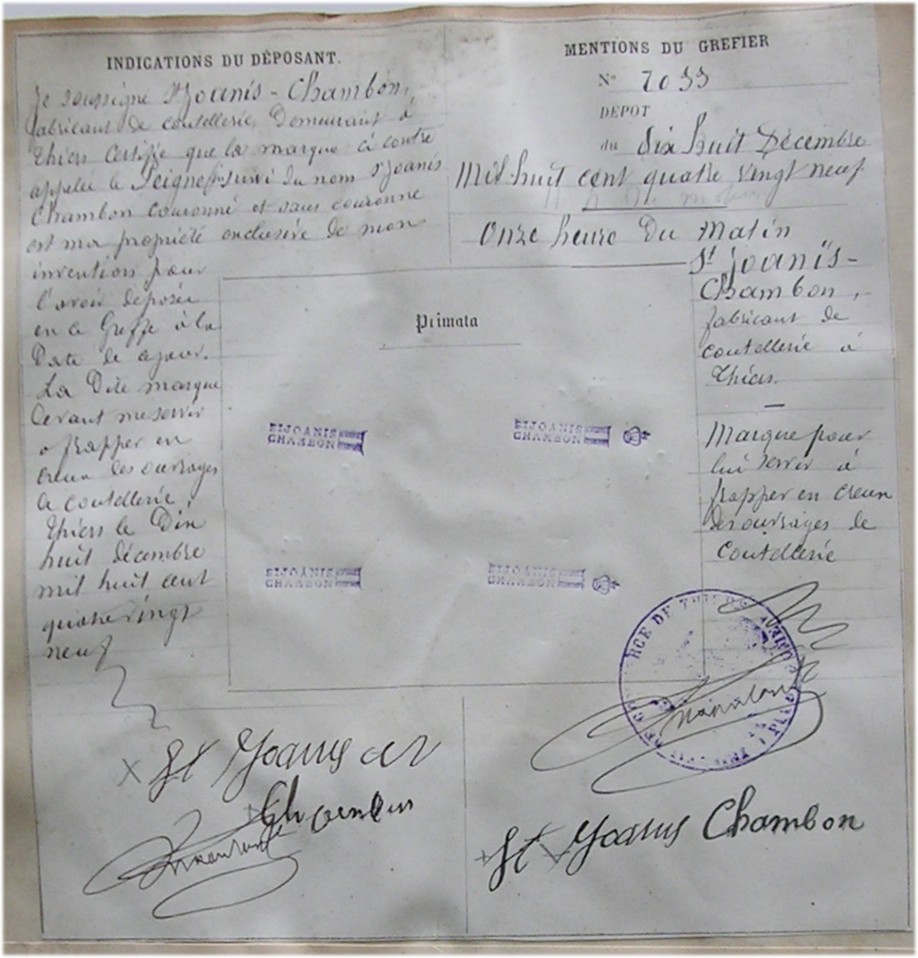 INDICATIONS DU DÉPOSANT.
Je soussigné St Joanis - Chambon,
fabricant de coutellerie, Demeurant à
Thiers Certifie que la marque ci contre
appelée le Peigne suivi du nom St Joanis
Chambon couronné et sans couronne
est ma propriété exclusive de mon
invention pour
l'avoir déposée
en ce Greffe à la
Date de ce jour.
La Dite marque
devant me servir
a frapper en
creux des ouvrages
de coutellerie,
Thiers le Dix
huit décembre
mil huit cent
quatre vingt
neuf
MENTIONS DU GREFIER
N° 7033
DEPOT
du dix huit Décembre
Mil huit cent quatre vingt neuf
Onze heure Du Matin
St Joanis -
Chambon,
fabricant de
coutellerie à
Thiers.
Marque pour
lui servir à
frapper en creux
des ouvrages de
coutellerie
Primata
STJOANIS
CHAMBON
STJOANIS
CHAMBON
STJOANIS
CHAMBON
STJOANIS
CHAMBON
RCE DE THIERS
St Joanis
St Joanis Chambon